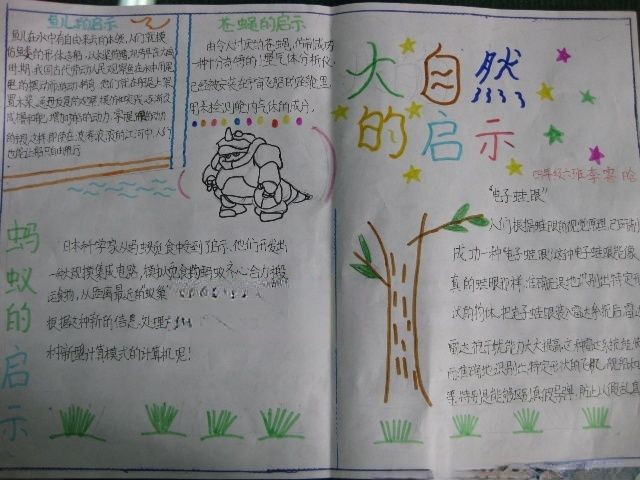 鱼儿的启示
鱼儿在水中有自由来去的本领,人们就模
仿鱼类的形体造船,以木桨仿鳍。相传早在大禹
时期,我国古代劳动人民观察鱼在水中用尾
巴的摇动而游动、转弯,他们就在船尾上架
置木桨。通过反复的观察、模仿和实践,逐渐改
成橹和舵,增加了船的动力,掌握
手段。这样,即使在波涛滚滚的江河中,人们
也能让船只自由航行
苍蝇的启示
由令人讨厌的苍蝇,仿制成功
一种十分奇特的小型气体分析仪。
已经被安装在宇宙飞船的座舱里,
用来检测舱内气体的成分。
蚂蚁的启示
日本科学家从蚂蚁觅食中受到了启示,他们开发出
一块大规模集成电路,模拟觅食的蚂蚁齐心合力搬
运食物,从距离最近的"蚁巢"
根据这种新的信息处理方
种新型计算模式的计算机呢!
大自然
的启示
四年级六班李
"电子蛙眼"
人们根据蛙眼的视觉原理,已研制
成功一种电子蛙眼。这种电子蛙眼能像
真的蛙眼那样,准确无误地识别出特定形
状的物体。把电子蛙眼装入雷达系统后,雷达
雷达抗干扰能力大大提高。这种雷达系统能快
而准确地识别出特定形状的飞机、舰船和
等。特别是能够区别真假导弹,防止以假乱真